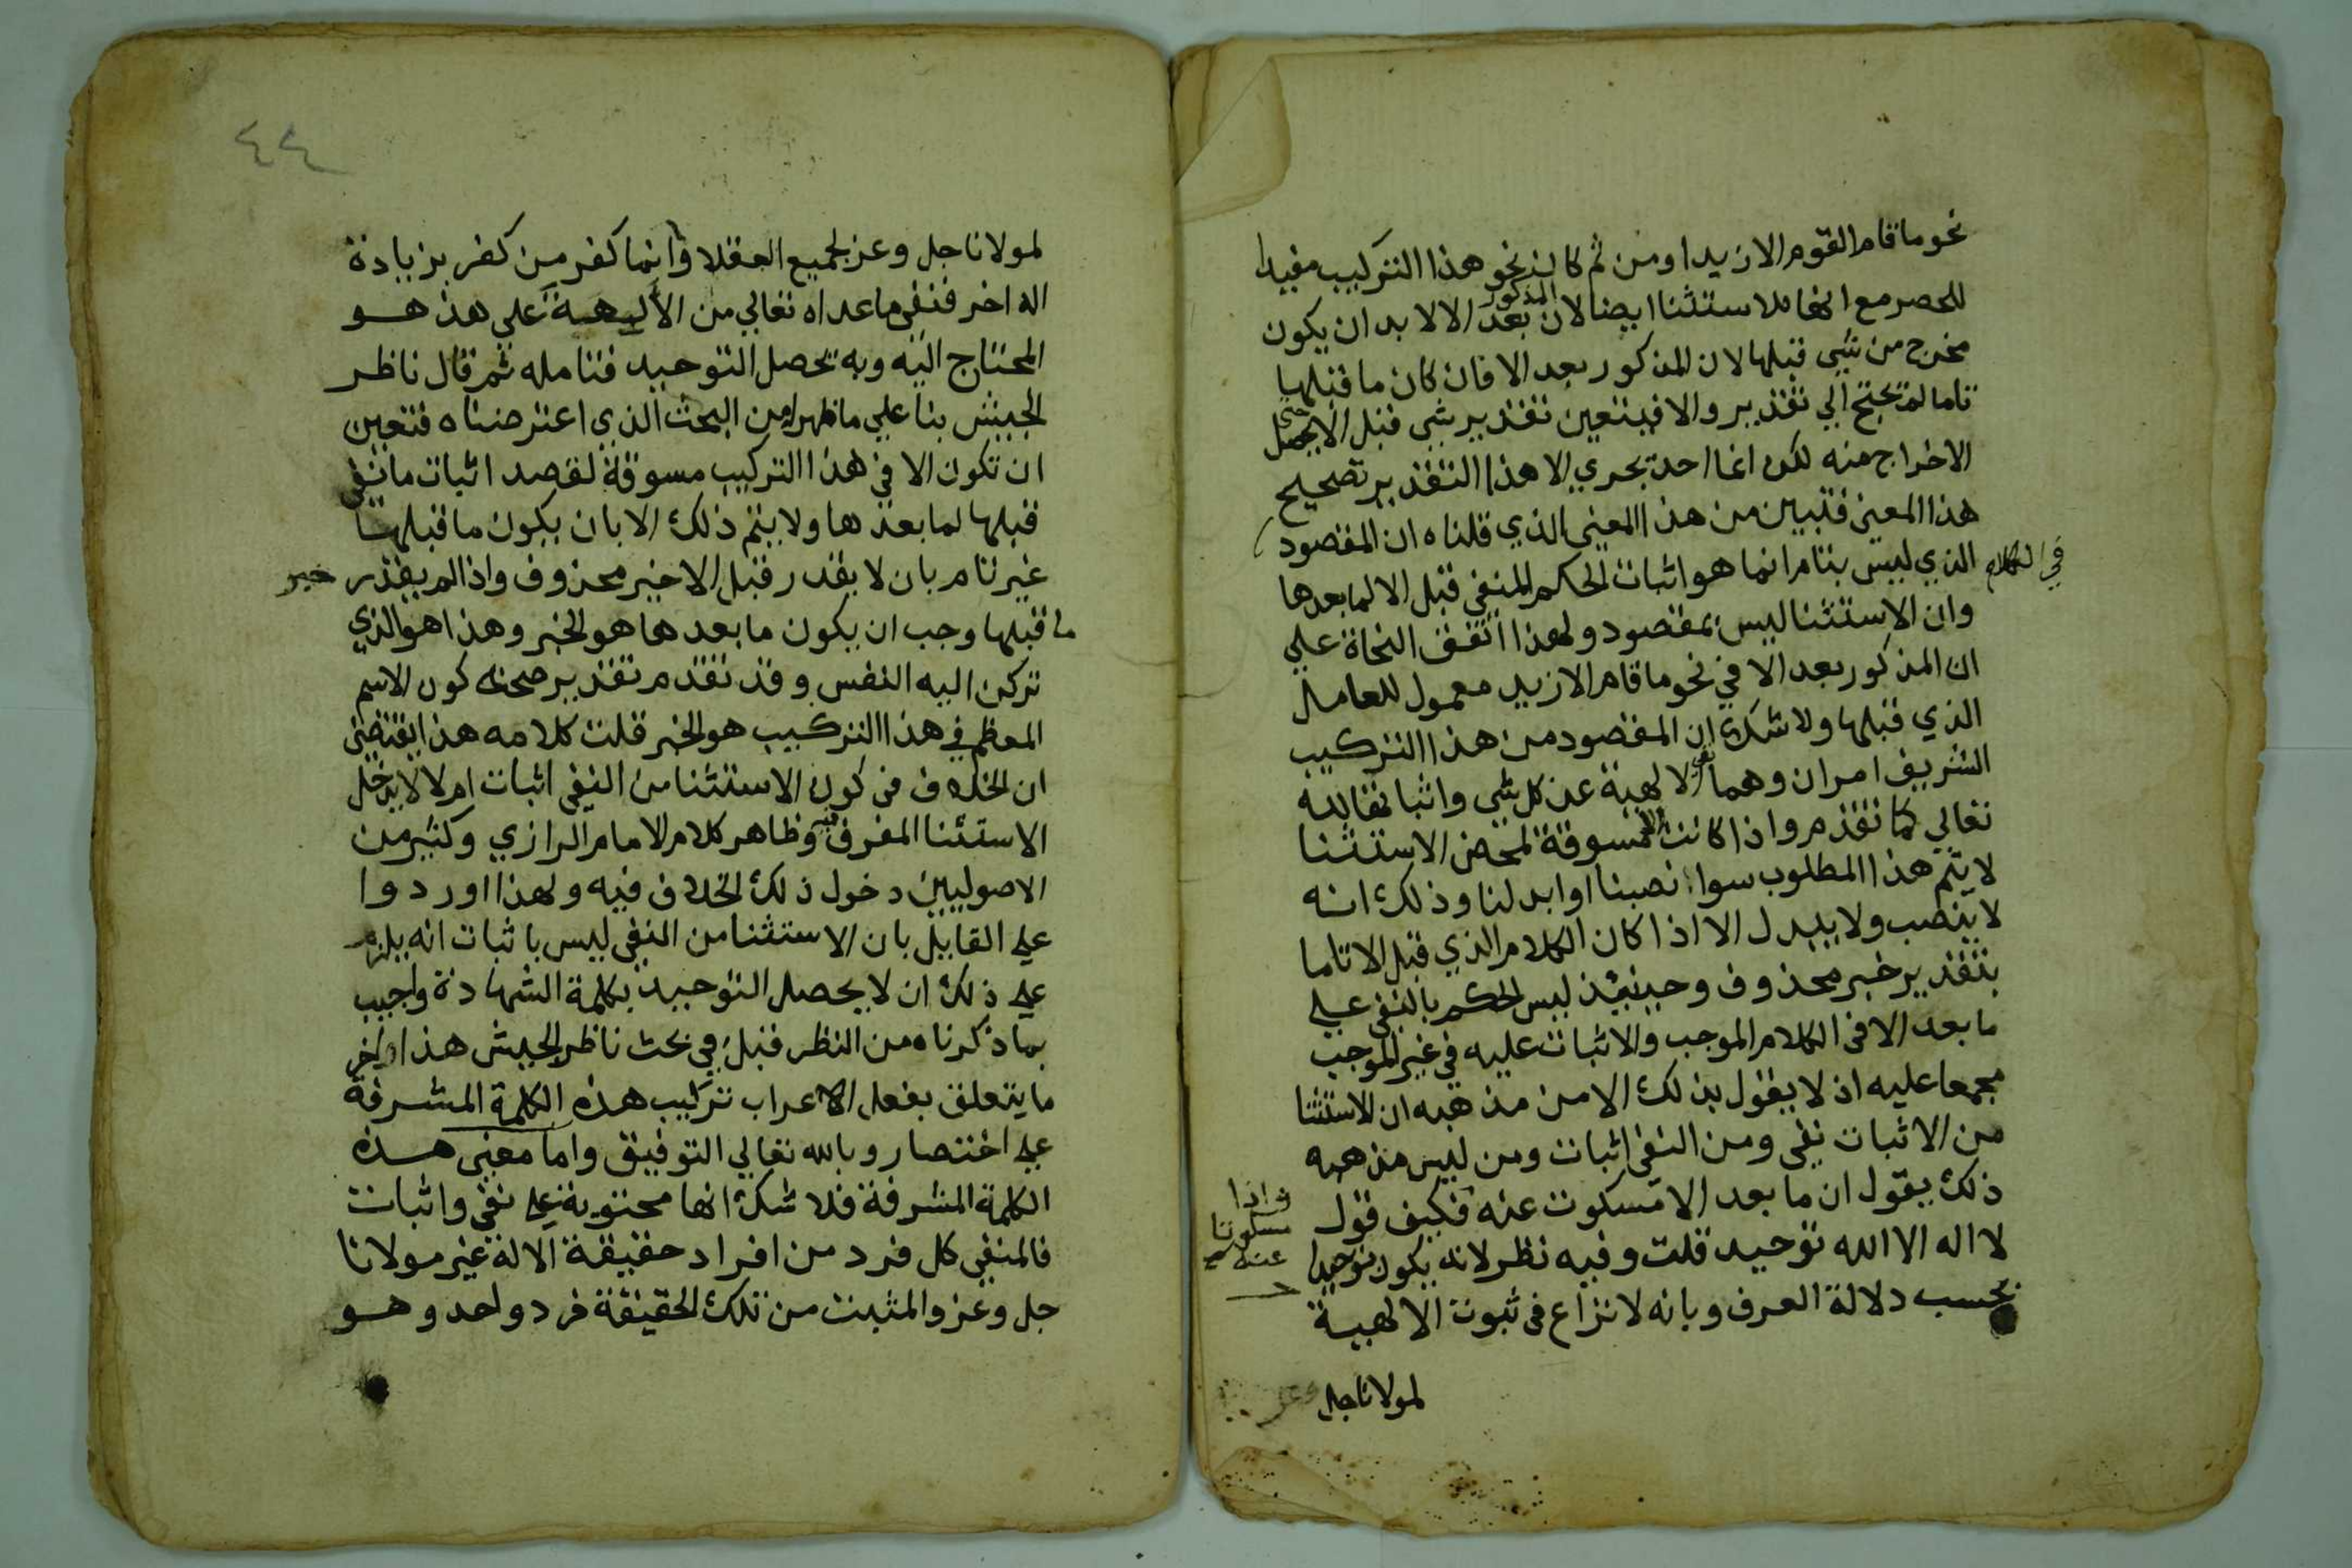 نحو ما قام القوم الا زيدا ومن ثم كان نحو هذا التركيب مفيدا
للحصر مع انها للاستثنا ايضا لان المذكور بعد الا لا بد ان يكون
مخرج من شي قبلها لان المذكور بعد الا فان كان ما قبلها
تاما لم تحتج الي تقدير والا فيتعين تقدير شي قبل الا حتي يحصل
الاخراج منه لكن انما احد تجري الا هذا التقدير تصحيح
هذا المعنى فتبين من هذا المعني الذي قلناه ان المقصود
في الكلام الذي ليس بتام انما هو اثبات الحكم المنفي قبل الا لما بعدها
وان الاستثنا ليس بمقصود ولهذا اتفق النحاة علي
ان المذكور بعد الا في نحو ما قام الا زيد معمول للعامل
الذي قبلها ولا شك ان المقصود من هذا التركيب
الشريف امران وهما نفي الالهية عن كل شي واثباتها لله
تعالي كما تقدم واذا كانت الا مسوقة لمحض الاستثنا
لا يتم هذا المطلوب سوا نصبنا او ابدلنا وذلك انه
لا ينصب ولا يبدل الا اذا كان الكلام الذي قبل الا تاما
بتقدير خبر محذوف وحينئذ ليس الحكم بالنفي علي
ما بعد الا في الكلام الموجب والاثبات عليه في غير الموجب
مجمعا عليه اذ لا يقول بذلك الا من مذهبه ان الاستثنا
من الاثبات نفي ومن النفي اثبات ومن ليس مذهبه
ذلك يقول ان ما بعد الا مسكوت عنه فكيف قول
واذا
مسكوتا
عنه
لا اله الا الله توحيد قلت وفيه نظر لانه يكون توحيدا
بحسب دلالة العرف وبانه لا نزاع في ثبوت الالهية
لمولانا جل وعز
٤٤
لمولانا جل وعز لجميع العقلا وانما كفر من كفر بزيادة
اله اخر فنفي ما عداه تعالي من الالهية علي هذا هو
المحتاج اليه وبه يحصل التوحيد فتامله ثم قال ناظر
الجيش بنا علي ما ظهر له من البحث الذي اعترضناه فتعين
ان تكون الا في هذا التركيب مسوقة لقصد اثبات ما نفي
قبلها لما بعدها ولا يتم ذلك الا بان يكون ما قبلها
غير تام بان لا يقدر قبل الا خبر محذوف واذا لم يقدر خبر
ما قبلها وجب ان يكون ما بعدها هو الخبر وهذا هو الذي
تركن اليه النفس وقد تقدم تقدير صحة كون الاسم
المعظم في هذا التركيب هو الخبر قلت كلامه هذا يقتضي
ان الخلاف في كون الاستثنا من النفي اثبات ام لا لا يدخل
الاستثنا المفرغ فيه وظاهر كلام الامام الرازي وكثير من
الاصوليين دخول ذلك الخلاف فيه ولهذا اوردوا
علي القايل بان الاستثنا من النفي ليس باثبات انه يلزم
علي ذلك ان لا يحصل التوحيد بكلمة الشهادة واجيب
بما ذكرناه من النظر قبل في بحث ناظر الجيش هذا اخر
ما يتعلق بفعل الاعراب تركيب هذه الكلمة المشرفة
علي اختصار وبالله تعالي التوفيق واما معني هذه
الكلمة المشرفة فلا شك انها محتوية علي نفي واثبات
فالمنفي كل فرد من افراد حقيقة الاله غير مولانا
جل وعز والمثبت من تلك الحقيقة فرد واحد وهو